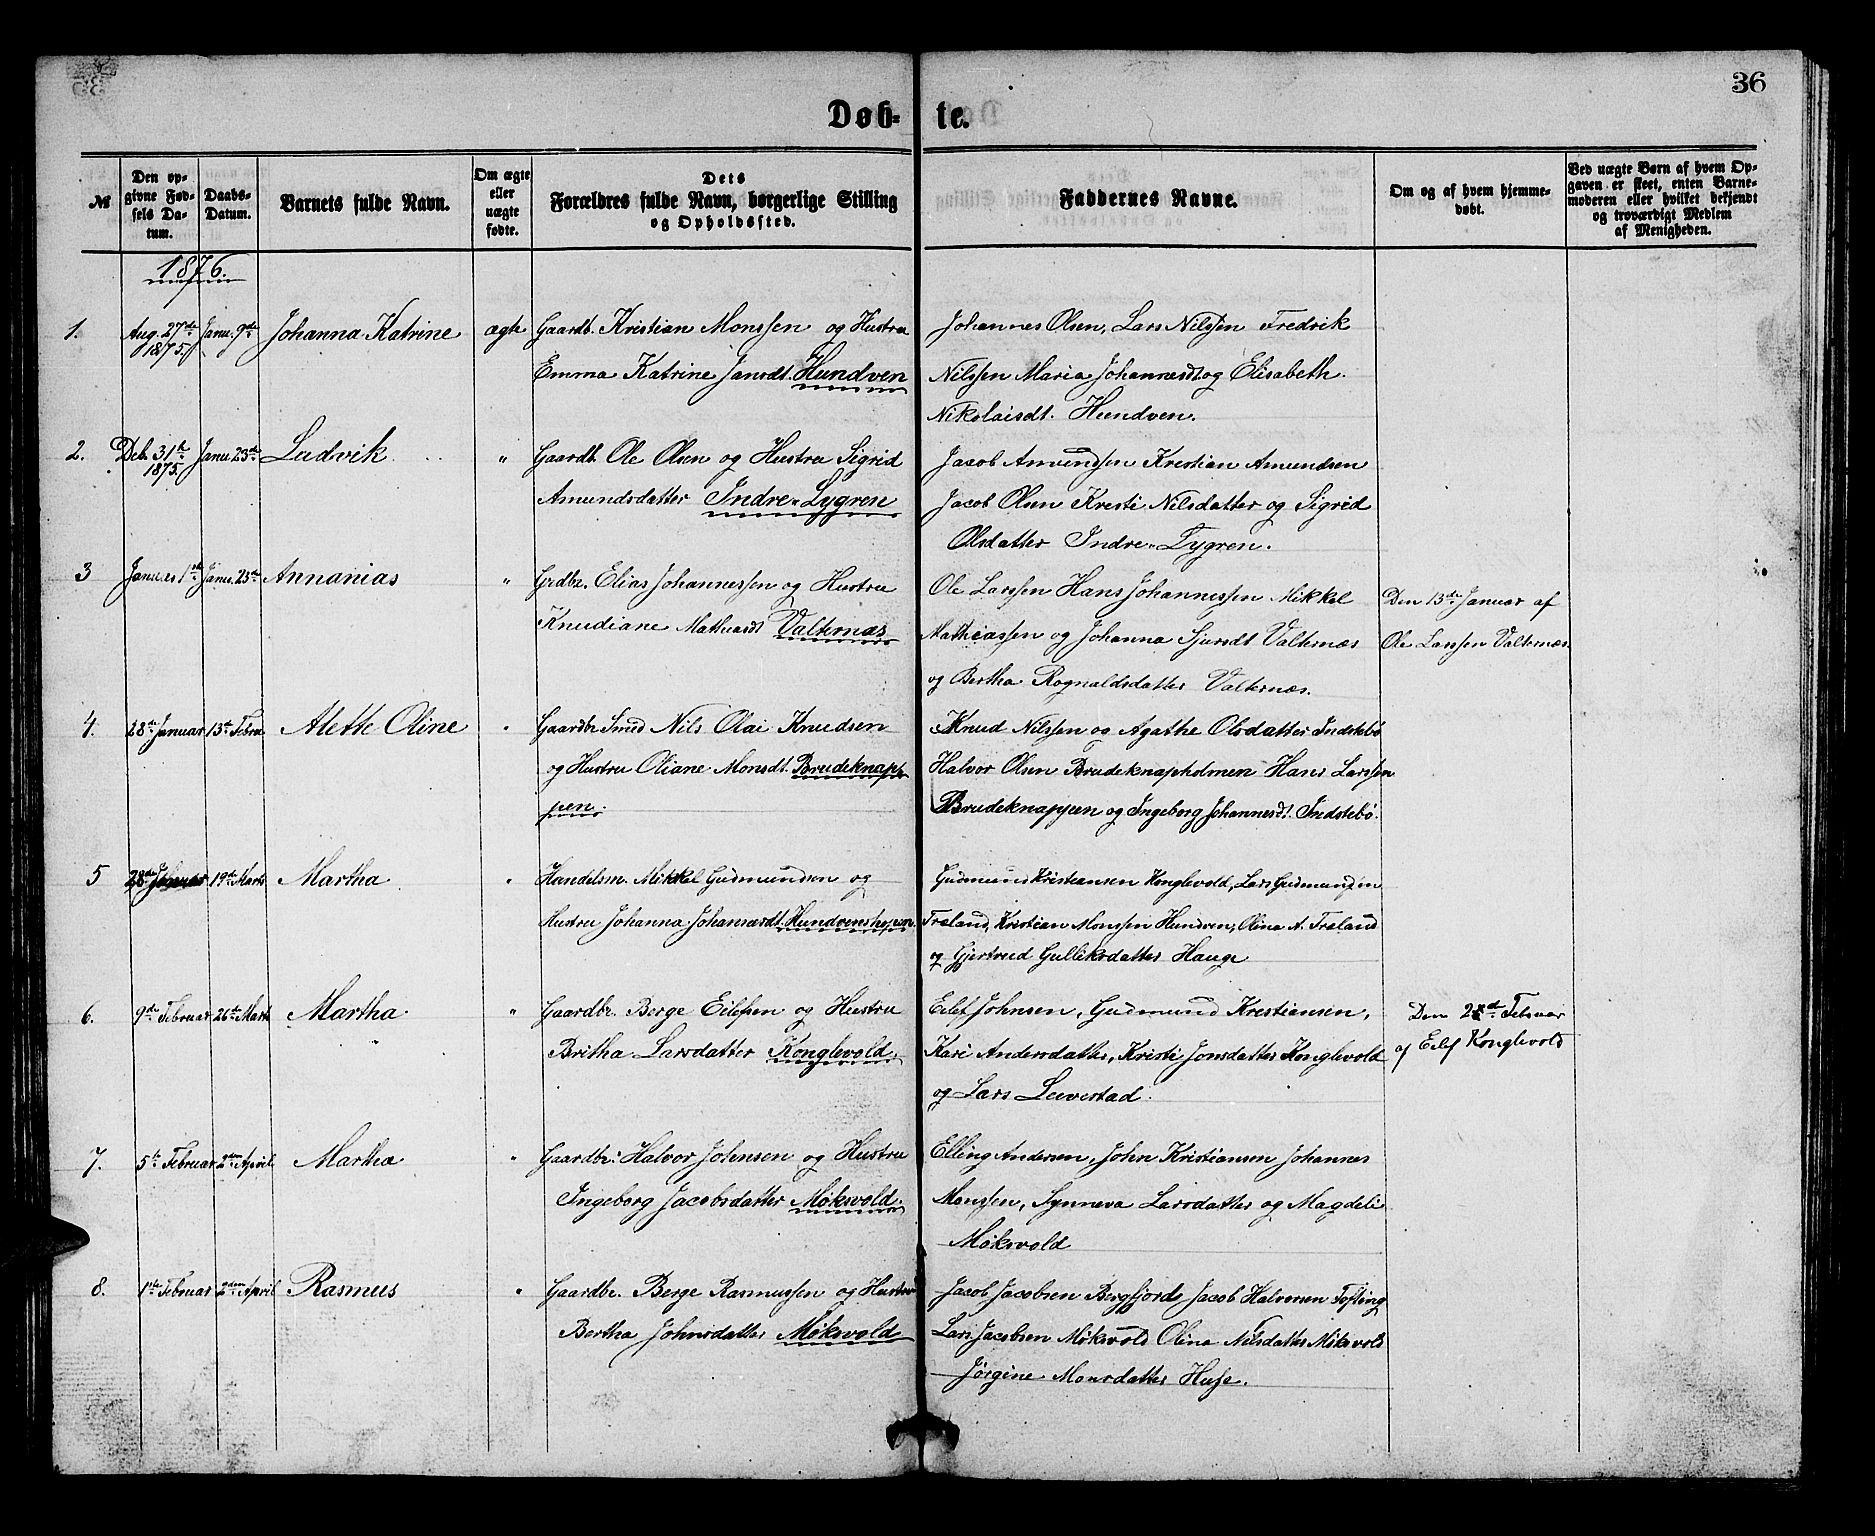 36
Døb- te.
№
Den opgivne Fødsels Datum.
Daabs-Datum.
Barnets fulde Navn.
Om ægte eller uægte fødte.
Dets Forældres fulde Navn, borgerlige Stilling og Opholdssted.
Faddernes Navne.
Om og af hvem hjemmedøbt.
Ved uægte Børn af hvem Opgaven er skeet, enten Barnemoderen eller hvilket bekjendt og troværdigt Medlem af Menigheden.
1876.
1. Aug. 27de 1875. Janu. 9de Johanna Katrine ægte Gaardb. Kristian Monssen og Hustru
Emma Katrine Jansdt. Hundven
Johannes Olsen, Lars Nilssen Fredrik
Nilssen Maria Johannesdt og Elisabeth
Nikolaisdt. Hundven.
2. Deb. 31te 1875. Janu. 23de Ludvik " Gaardb. Ole Olsen og Hustru Sigrid
Amundsdatter Indre-Lygren
Jacob Amundsen Kristian Amundsen
Jacob Olsen Kristi Nilsdatter og Sigrid
Olsdatter Indre-Lygren.
3 Januar 1ste Janu. 23de Annanias " Grdbr. Elias Johannessen og Hustru
Knudiane Mathiasdt Valternæs
Ole Larssen Hans Johannessen Mikkel
Mathiassen og Johanna Sjursdt Valternæs
og Bertha Rognaldsdatter Valternæs.
Den 13de Januar af
Ole Larssen Valternæs
4. 28de Januar 13de Febru Alette Oline " Gaardbr Smed Nils Olai Knudsen
og Hustru Oliane Monsdt. Brudeknap-
pen.
Knud Nilssen og Agathe Olsdatter Indstebø
Halvor Olsen Brudeknapholmen Hans Larssen
Brudeknappen og Ingeborg Johannesdt. Indstebø.
5 28de Januar 19de Marts Martha " Handelsm. Mikkel Gudmundsen og
Hustru Johanna Johannesdt. Hundvenshopen.
Gudmund Kristiansen Konglevold, Lars Gudmundsen
Træland, Kristian Monssen Hundven, Olina A. Træland
og Gjertrud Gulliksdatter Hauge
6. 9de Februar 26de Marts Martha " Gaardbr. Berge Eilefsen og Hustru
Britha Larsdatter Konglevold.
Eilef Johnsen, Gudmund Kristiansen,
Kari Andersdatter, Kristi Jonsdatter Konglevold
og Lars Leivestad.
Den Februar
af Eilef Konglevold
7. 5te Februar 2den April Martha " Gaardbr. Halvor Johnsen og Hustru
Ingeborg Jacobsdatter Møksvold.
Elling Andersen, John Kristiansen Johannes
Monssen, Synneva Larsdatter og Magdeli
Møksvold
8. 1ste Februar 2den April Rasmus " Gaardbr. Berge Rasmussen og Hustru
Bertha Johnsdatter Møksvold
Jacob Jacobsen Bergfjord Jacob Halversen Tofting
Lars Jacobsen Møksvold Olina Nilsdatter Møksvold
Jørgine Monsdatter Huse.